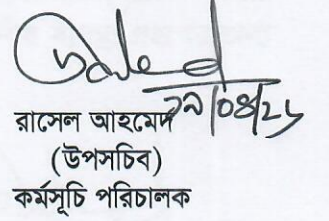 ২৯/০৪/২৫
রাসেল আহমেদ
(উপসচিব)
কর্মসূচি পরিচালক